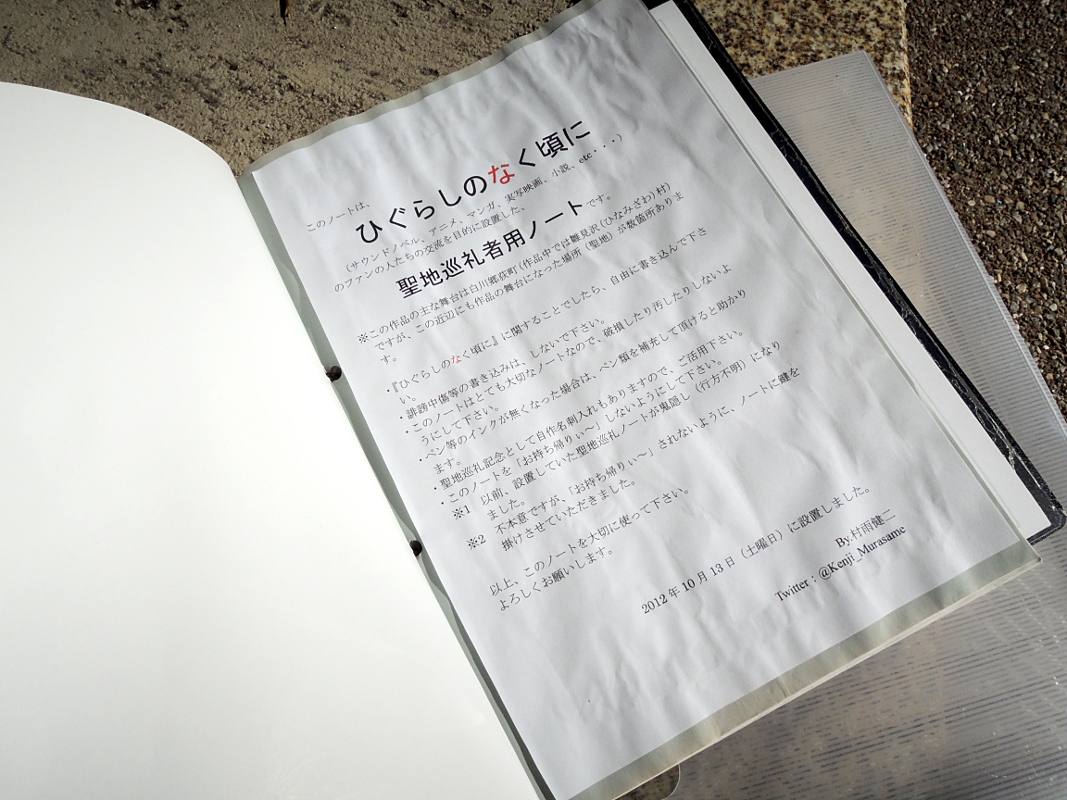 このノートは、
ひぐらしのなく頃に
（サウンドノベル、アニメ、マンガ、実写映画、小説、etc・・・）
のファンの人たちの交流を目的に設置した、
聖地巡礼者用ノートです。
※この作品の主な舞台は白川郷荻町（作品中では雛見沢（ひなみざわ）村）
ですが、この近辺にも作品の舞台になった場所（聖地）が数箇所ありま
す。
・『ひぐらしのなく頃に』に関することでしたら、自由に書き込んで下さ
い。
・誹謗中傷等の書き込みは、しないで下さい。
・このノートはとても大切なノートなので、破損したり汚したりしないよ
うにして下さい。
・ペン等のインクが無くなった場合は、ペン類を補充して頂けると助かり
ます。
・聖地巡礼記念として自作名刺入れもありますので、ご活用下さい。
・このノートを「お持ち帰りぃ～」しないようにして下さい。
※1 以前、設置していた聖地巡礼ノートが鬼隠し（行方不明）になり
ました。
※2 不本意ですが、「お持ち帰りぃ～」されないように、ノートに鍵を
掛けさせていただきました。
以上、このノートを大切に使って下さい。
よろしくお願いします。
2012年10月13日（土曜日）に設置しました。
By.村雨健二
Twitter：@Kenji_Murasame